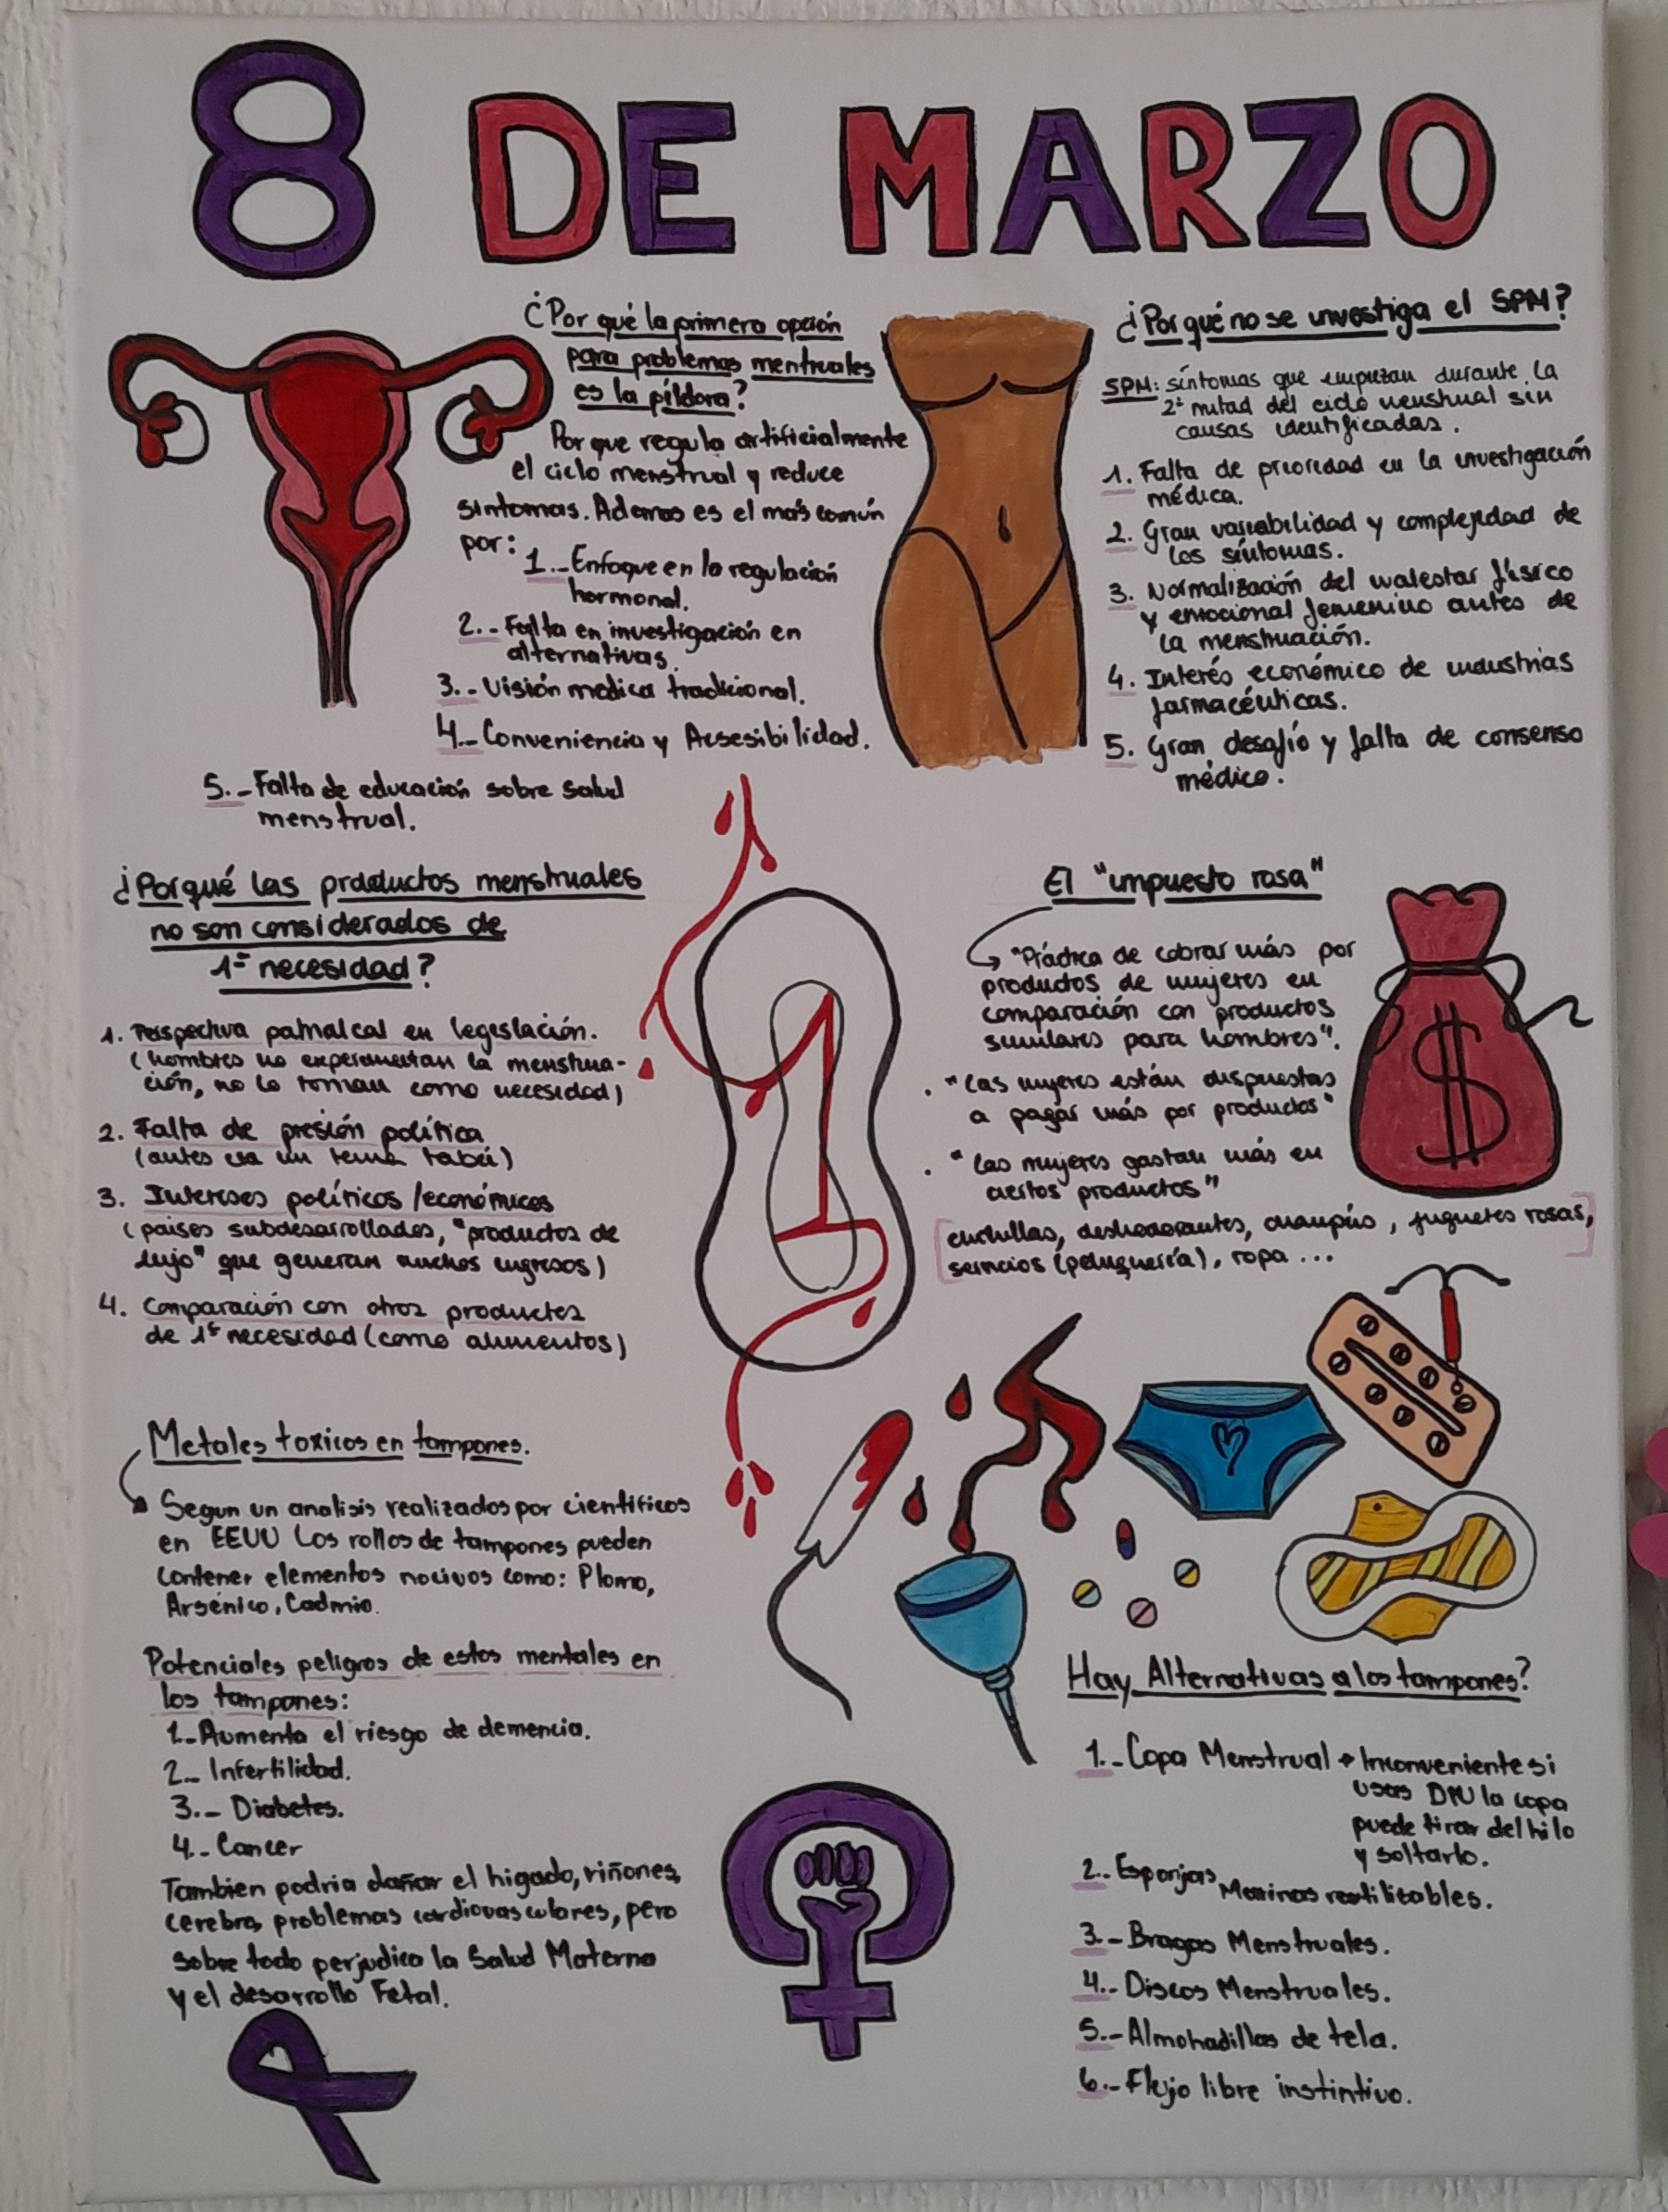 8 DE MARZO
¿Por qué la primera opción
para problemas mentruales
es la píldora?
Por que regula artificialmente
el ciclo menstrual y reduce
sintomas. Ademas es el más común
por:
1.- Enfoque en la regulación
hormonal.
2.- Falta en investigación en
alternativas.
3.- Visión medica tradicional.
4.- Conveniencia y Acsesibilidad.
5.- Falta de educación sobre salud
menstrual.
¿Por qué no se investiga el SPM?
SPM: síntomas que empiezan durante la
2ª mitad del ciclo menstrual sin
causas identificadas.
1. Falta de prioridad en la investigación
médica.
2. Gran variabilidad y complejidad de
los síntomas.
3. Normalización del malestar físico
y emocional femenino antes de
la menstruación.
4. Interés económico de industrias
farmacéuticas.
5. Gran desafío y falta de consenso
médico.
¿Porqué los productos menstruales
no son considerados de
1ª necesidad?
1. Perspectiva patriarcal en legislación.
(hombres no experimentan la menstrua-
ción, no lo toman como necesidad)
2. Falta de presión política
(antes era un tema tabú)
3. Intereses políticos/económicos
(países subdesarrollados, "productos de
lujo" que generan muchos ingresos)
4. Comparación con otros productos
de 1ª necesidad (como alimentos)
El "impuesto rosa"
"Práctica de cobrar más por
productos de mujeres en
comparación con productos
similares para hombres".
. "Las mujeres están dispuestas
a pagar más por productos"
. "Las mujeres gastan más en
ciertos productos"
[cuchillas, deshodorantes, champús, juguetes rosas,
servicios (peluquería), ropa ...]
$
Metales toxicos en tampones.
Segun un analisis realizados por cientificos
en EEUU Los rollos de tampones pueden
contener elementos nocivos como: Plomo,
Arsénico, Cadmio.
Potenciales peligros de estos mentales en
los tampones:
1.- Aumenta el riesgo de demencia.
2.- Infertilidad.
3.- Diabetes.
4.- Cancer
Tambien podria dañar el higado, riñones,
cerebro, problemas cardiovasculares, pero
sobre todo perjudica la Salud Materna
y el desarrollo Fetal.
Hay Alternativas a los tampones?
1.- Copa Menstrual → Inconveniente si
usas DIU la copa
puede tirar del hilo
y soltarlo.
2.- Esponjas Marinas reutilitables.
3.- Bragas Menstruales.
4.- Discos Menstruales.
5.- Almohadillas de tela.
6.- Flujo libre instintivo.